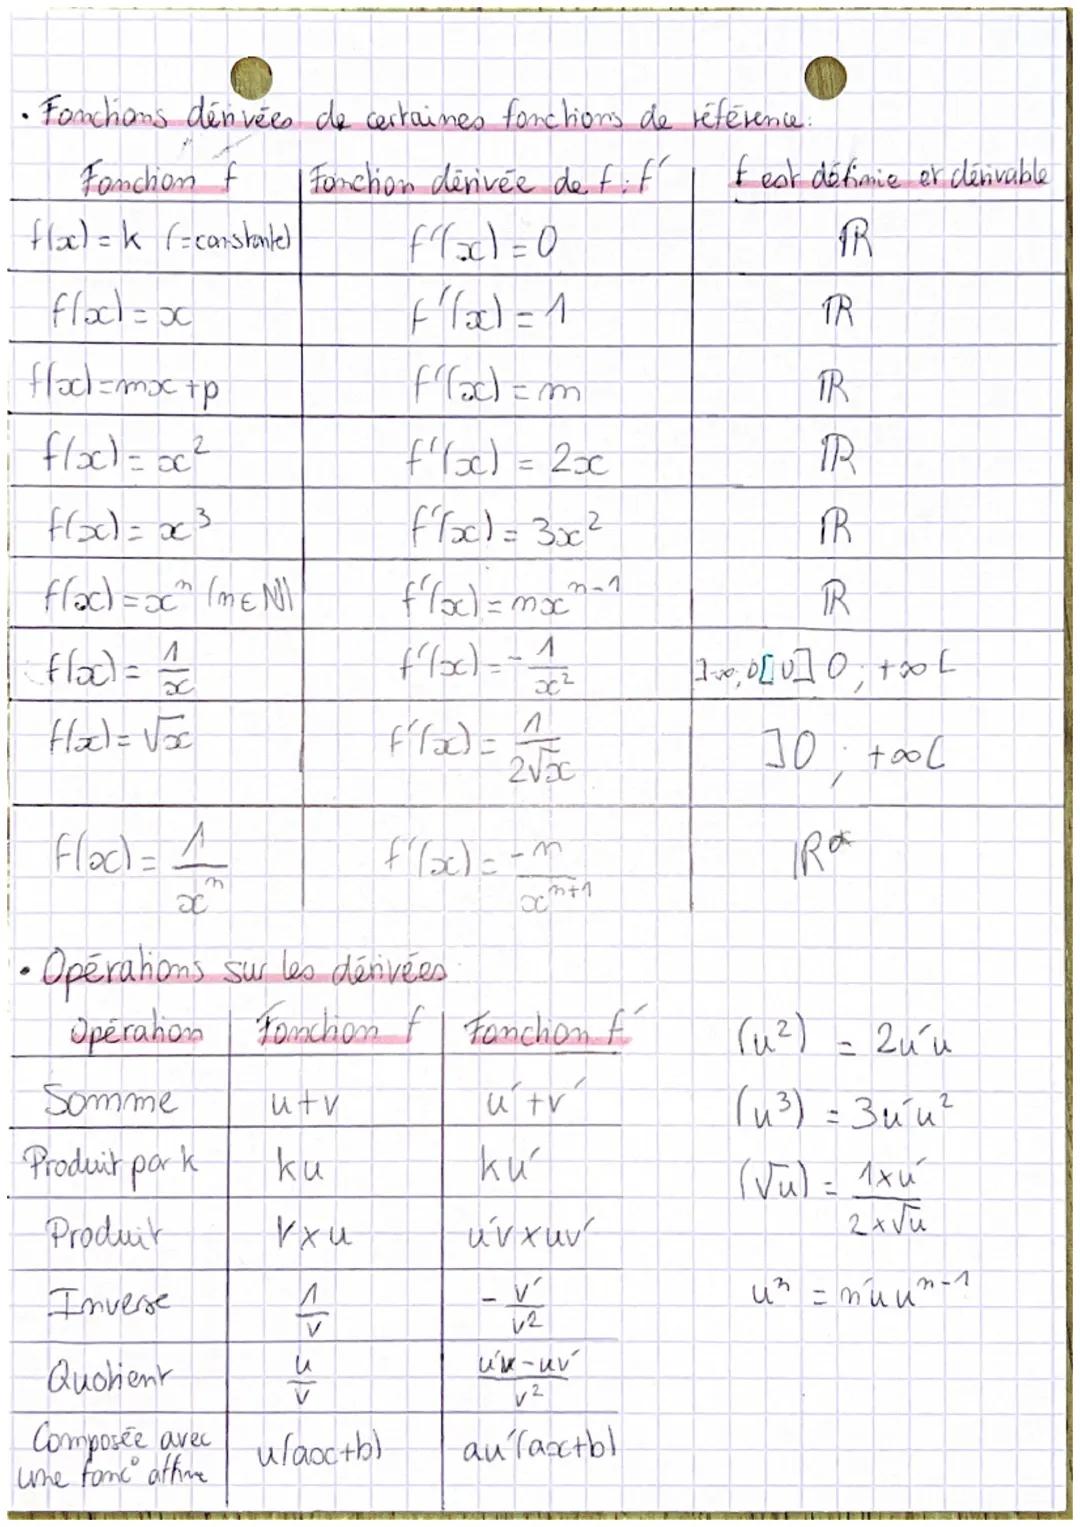 • Fonctions dérivées de certaines fonctions de référence:
Fonction f | Fonction dérivée de f : f' | f est définie et dérivable
f(x) = k (=constante) | f'(x) = 0 | ℝ
f(x) = x | f'(x) = 1 | ℝ
f(x) = mx + p | f'(x) = m | ℝ
f(x) = x² | f'(x) = 2x | ℝ
f(x) = x³ | f'(x) = 3x² | ℝ
f(x) = xⁿ (n ∈ ℕ) | f'(x) = nxⁿ⁻¹ | ℝ
f(x) = 1/x | f'(x) = - 1/x² | ]-∞; 0[ U ] 0 ; +∞ [
f(x) = √x | f'(x) = 1/(2√x) | ]0 ; +∞[
f(x) = 1/xⁿ | f'(x) = -n/xⁿ⁺¹ | ℝ*
• Opérations sur les dérivées
Opération | Fonction f | Fonction f'
Somme | u+v | u'+v'
Produit par k | ku | ku'
Produit | v×u | u'v×uv'
Inverse | 1/v | - v'/v²
Quotient | u/v | (u'v-uv')/v²
Composée avec une fonc° affine | u(ax+b) | au'(ax+b)
(u²) = 2u'u
(u³) = 3u'u²
(√u) = (1×u')/(2×√u)
uⁿ = n'u uⁿ⁻¹